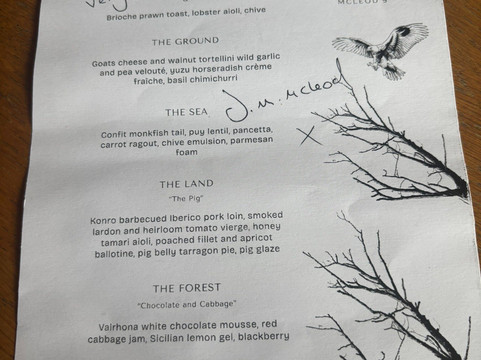 MCLEOD
Brioche prawn toast, lobster aioli, chive
THE GROUND
Goats cheese and walnut tortellini wild garlic
and pea velouté, yuzu horseradish crème
fraîche, basil chimichurri
J.M. McLeod
THE SEA
Confit monkfish tail, puy lentil, pancetta,
carrot ragout, chive emulsion, parmesan
foam
X
THE LAND
“The Pig”
Konro barbecued Iberico pork loin, smoked
lardon and heirloom tomato vierge, honey
tamari aioli, poached fillet and apricot
ballotine, pig belly tarragon pie, pig glaze
THE FOREST
“Chocolate and Cabbage”
Valrhona white chocolate mousse, red
cabbage jam, Sicilian lemon gel, blackberry